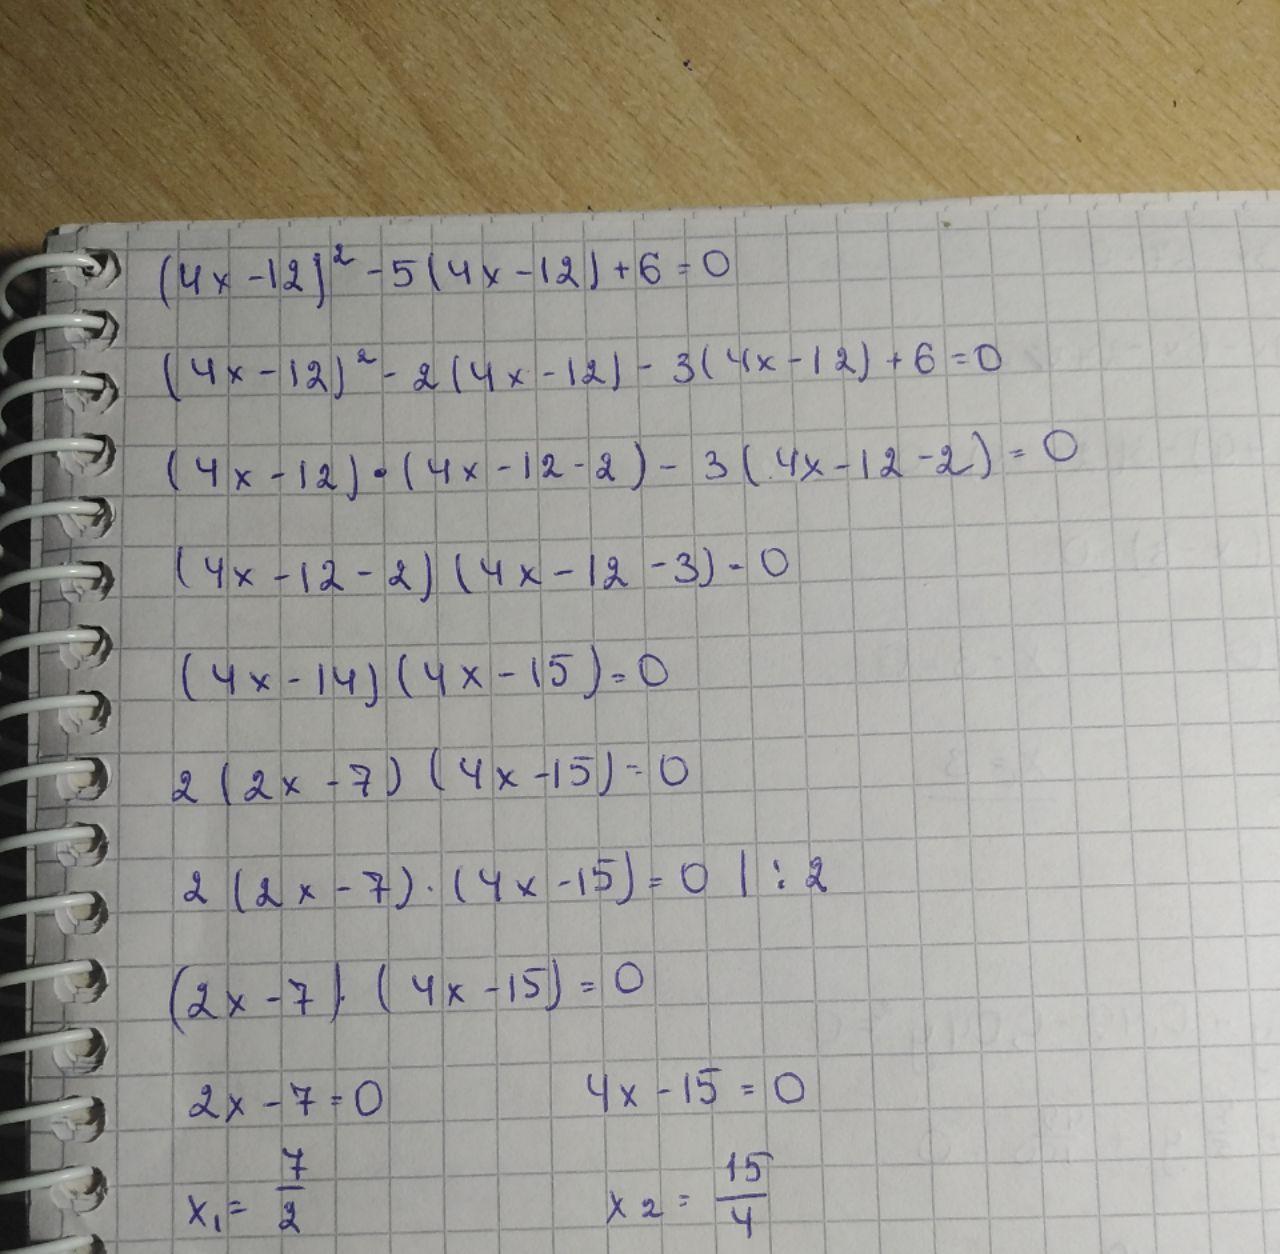 (4x-12)² -5(4x-12)+6=0
(4x-12)² -2(4x-12)-3(4x-12)+6=0
(4x-12)·(4x-12-2)-3(4x-12-2)=0
(4x-12-2)(4x-12-3)=0
(4x-14)(4x-15)=0
2(2x-7)(4x-15)=0
2(2x-7)·(4x-15)=0 |:2
(2x-7)·(4x-15)=0
2x-7=0 4x-15=0
x₁=7/2 x2=15/4